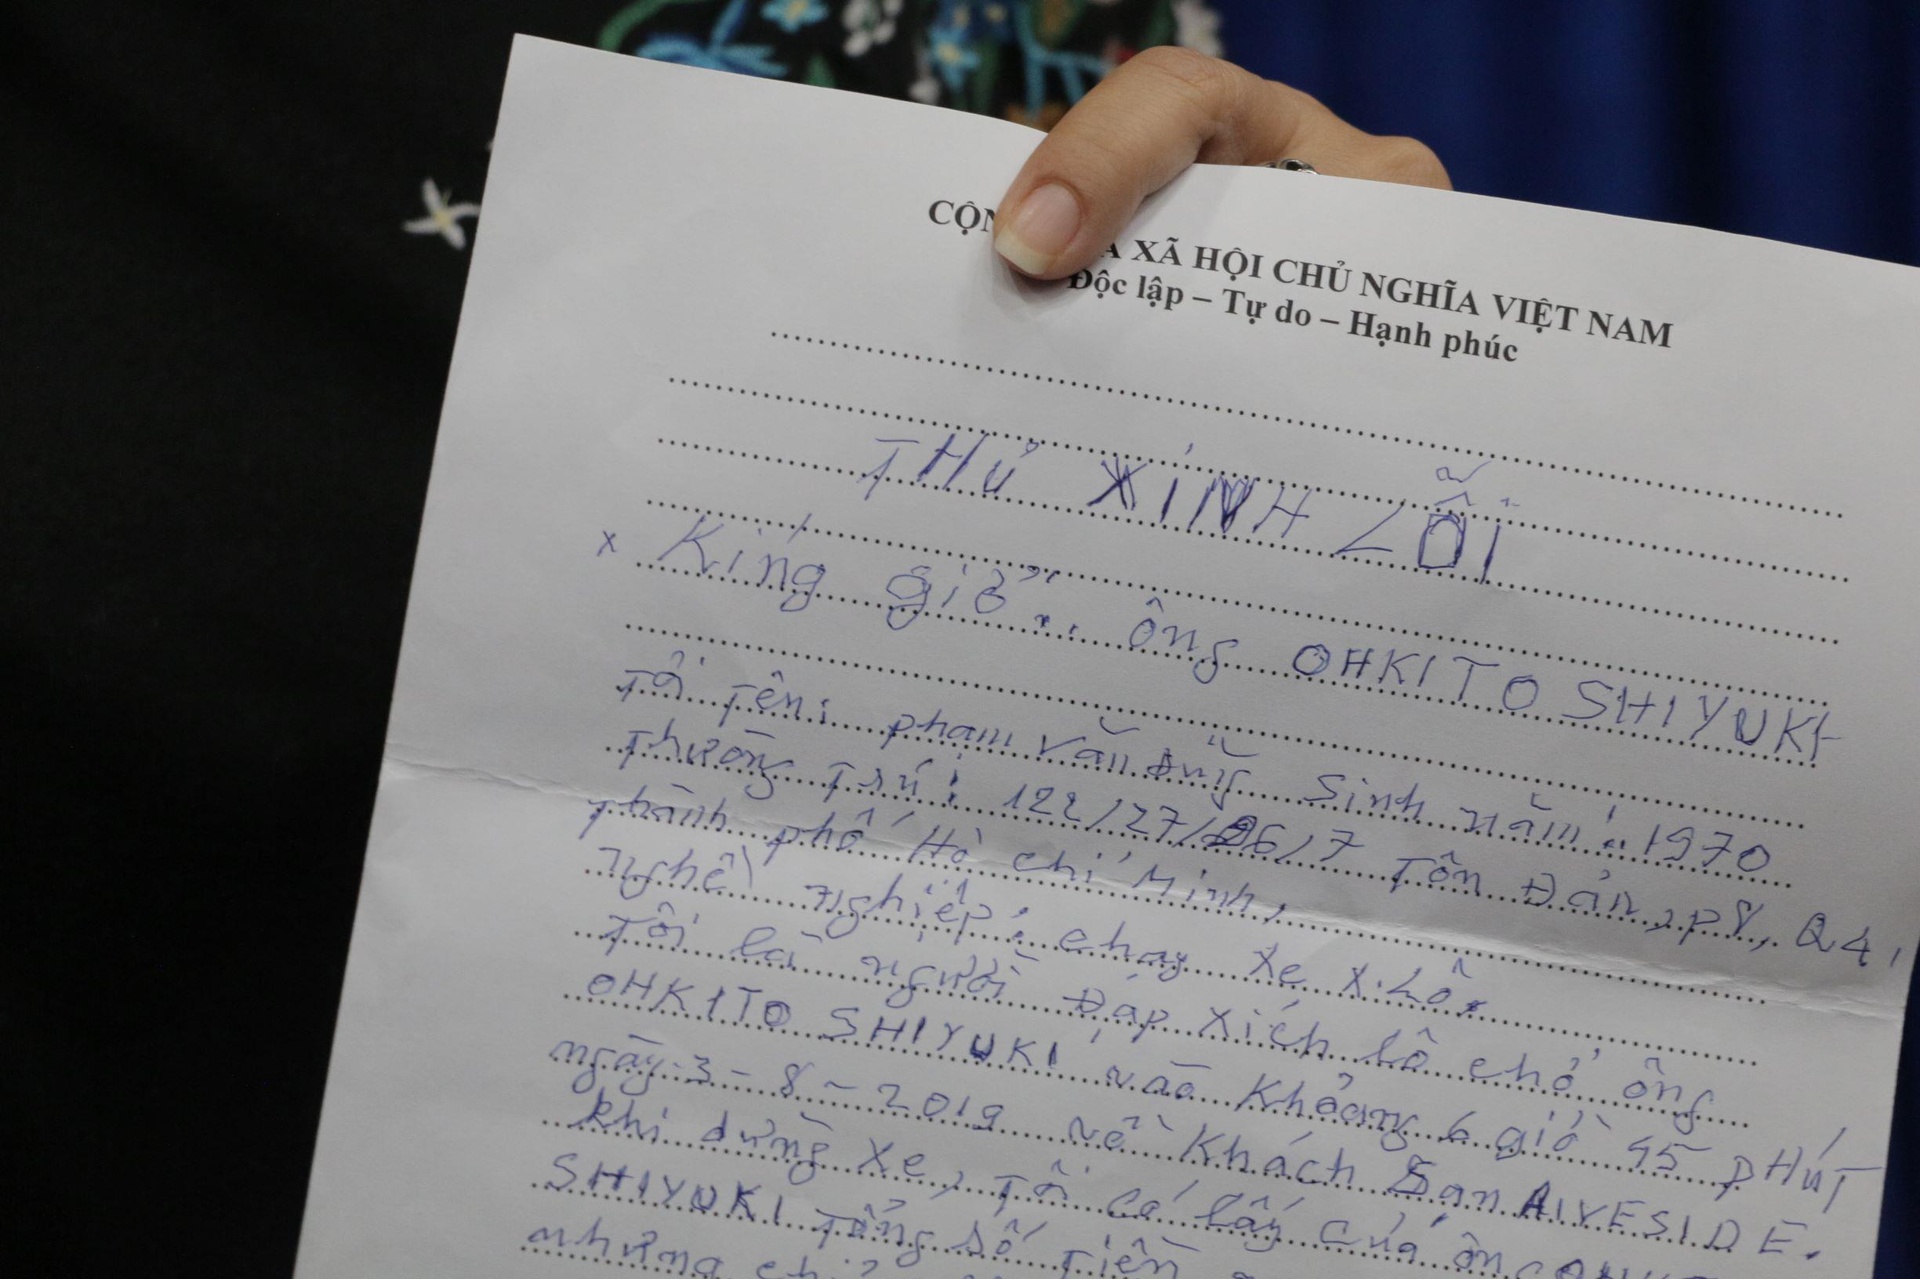 CỘN A XÃ HỘI CHỦ NGHĨA VIỆT NAM
Độc lập – Tự do – Hạnh phúc
THỦ XÍNH LỖI
x Kíng giở.. ông OHKITO SHIYUKI
Tôi Tên: phạm văn Dũng Sinh năm: 1970
Thường Trú: 122/27/26/7 Tôn Đản, p8, Q4,
Thành phố Hồ chí Minh,
Nghề nghiệp: chạy Xe X.Lô.
Tôi là người Đạp Xích lô chở ông
OHKITO SHIYUKI vào Khoảng 6 giờ 45 pHút
ngày 3-8-2019 về Khách Sạn RIVESIDE.
khi dừng Xe, Tôi có lấy của ôn
SHIYUKI Tổng số Tiền